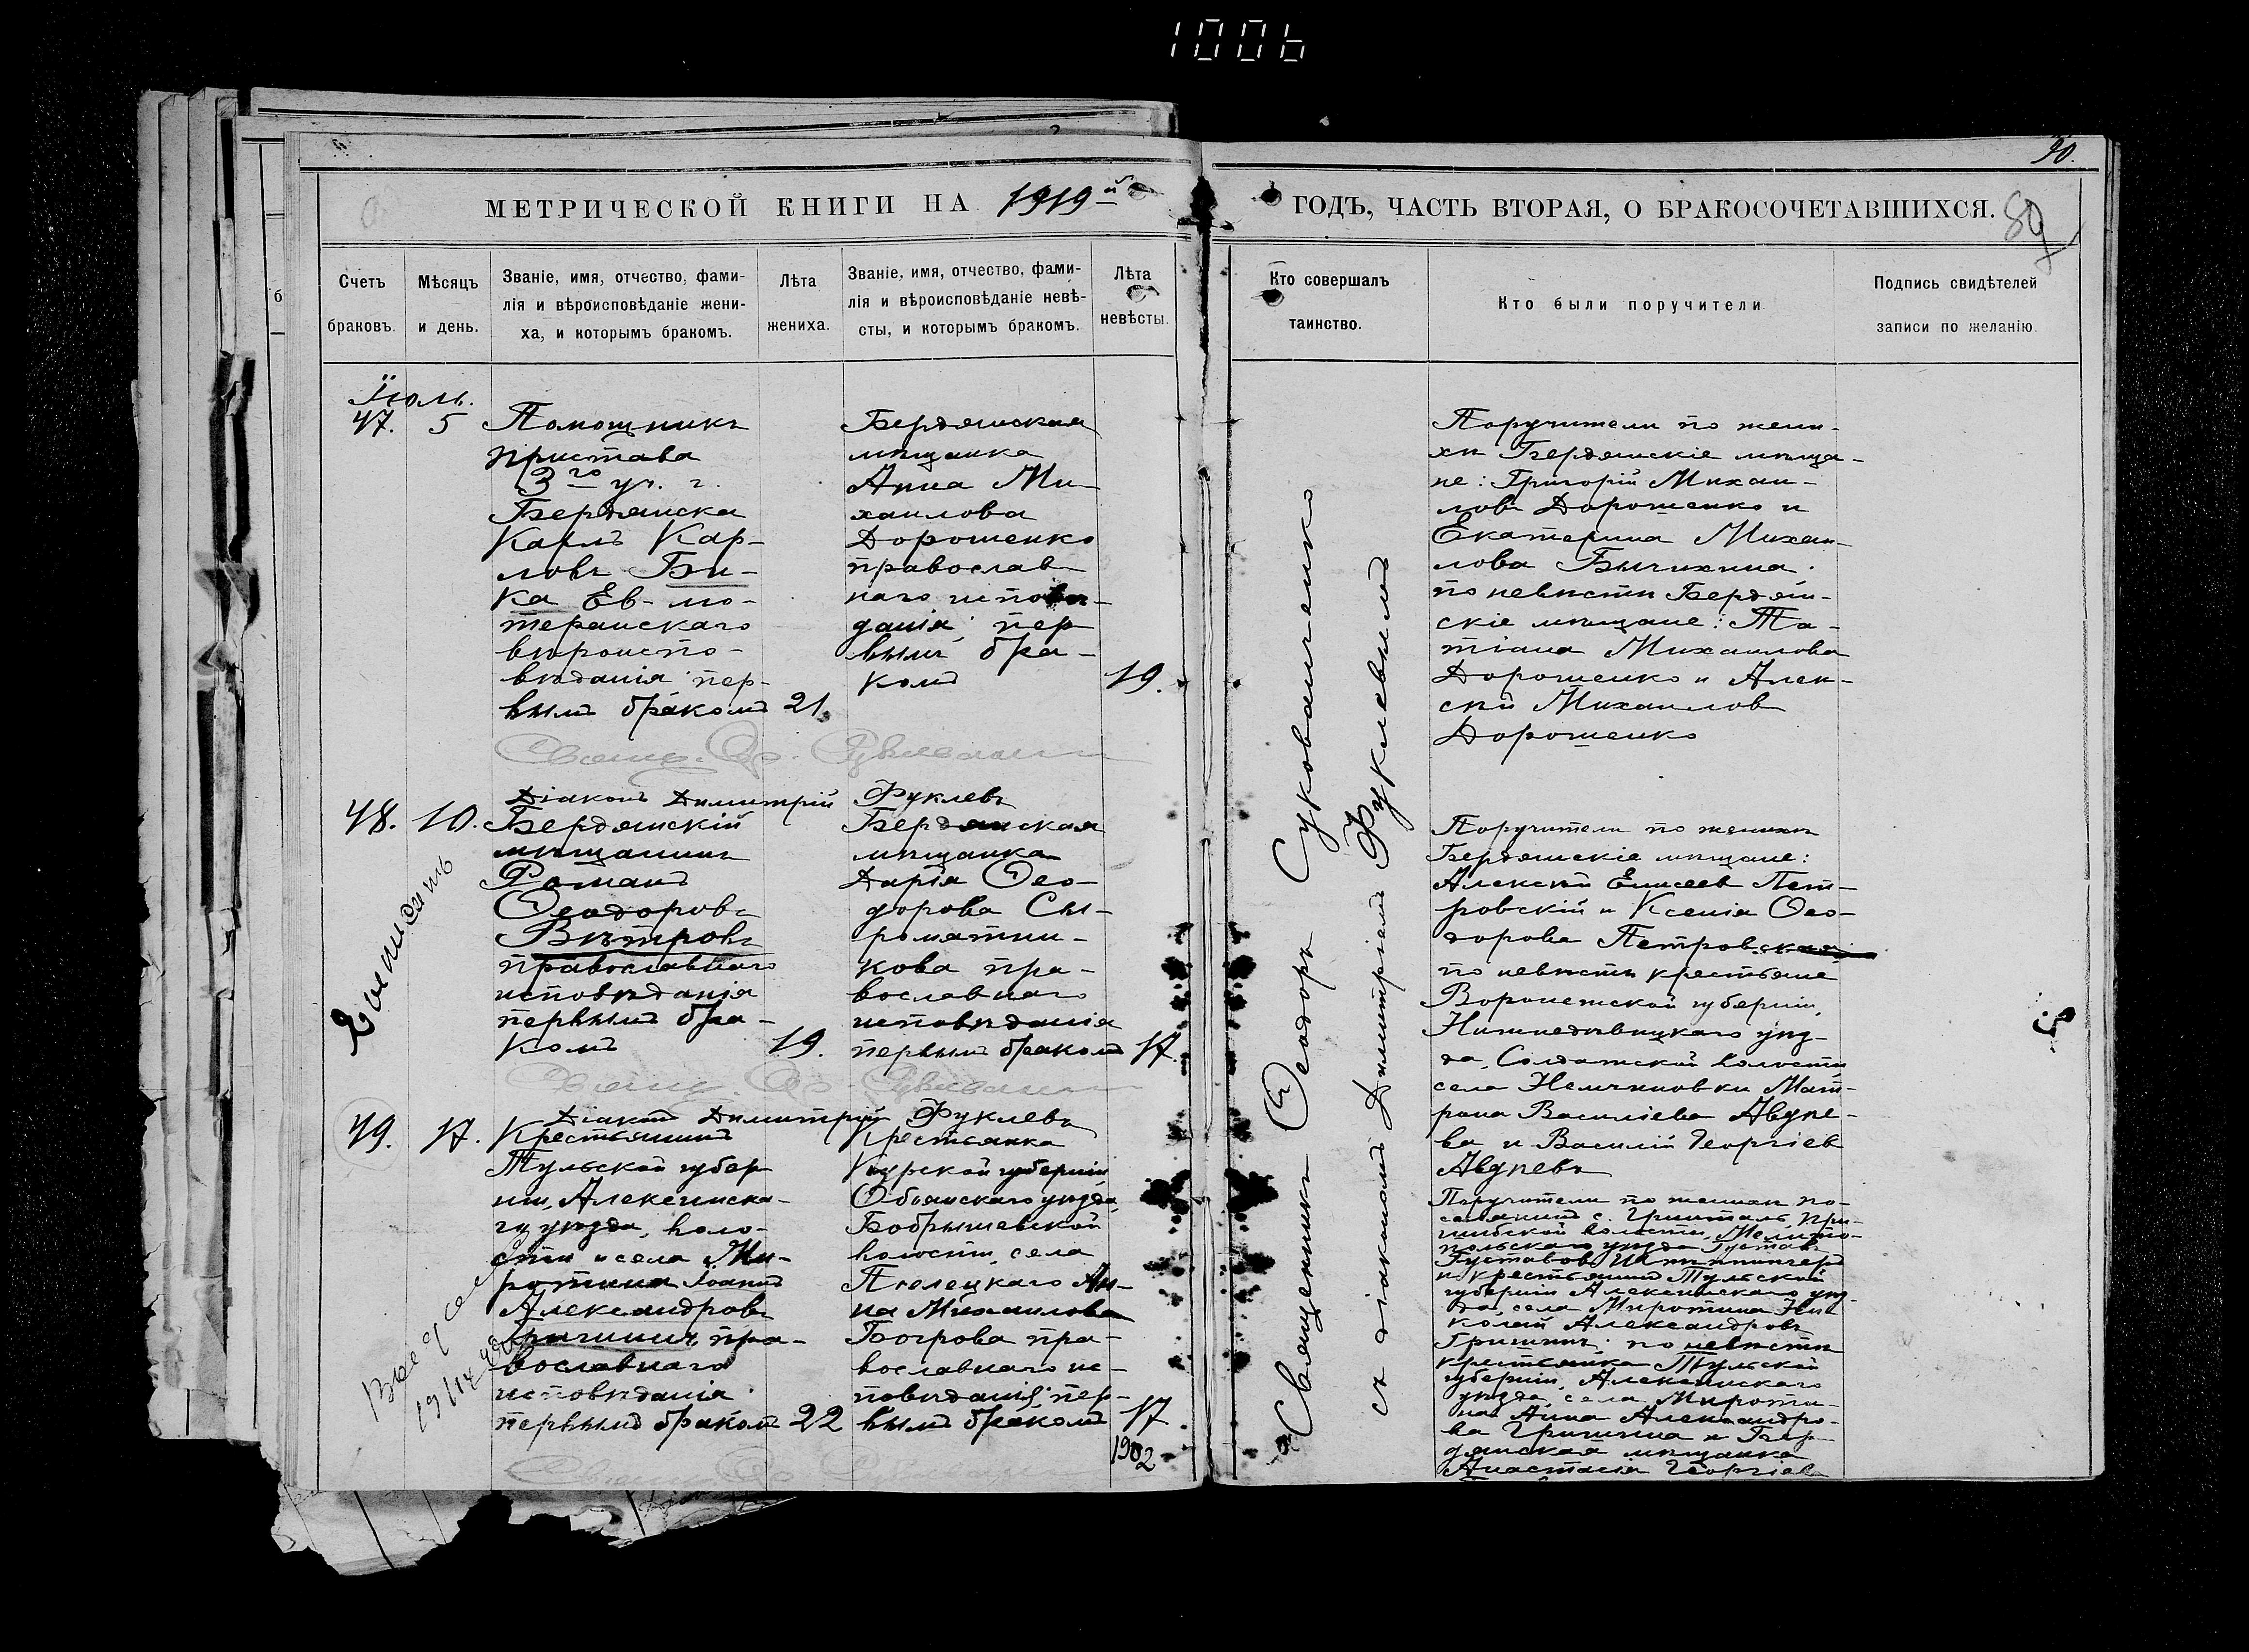 1006
90.
89
МЕТРИЧЕСКОЙ КНИГИ НА 1919й
ГОДЪ, ЧАСТЬ ВТОРАЯ, О БРАКОСОЧЕТАВШИХСЯ.
Счетъ
браковъ.
Мѣсяцъ
и день.
Званіе, имя, отчество, фами-
лія и вѣроисповѣданіе жени-
ха, и которымъ бракомъ.
Лѣта
жениха.
Званіе, имя, отчество, фами-
лія и вѣроисповѣданіе невѣ-
сты, и которымъ бракомъ.
Лѣта
невѣсты.
Кто совершалъ
таинство.
Кто были поручители
Подпись свидѣтелей
записи по желанію.
Іюль.
47. 5
Помощникъ
пристава
3го уч. г.
Бердянска
Карлъ Кар-
ловъ Би-
ка Ев-лю-
теранскаго
вѣроиспо-
вѣданія пер-
вымъ бракомъ 21.
Бердянская
мѣщанка
Анна Ми-
хаилова
Дорошенко
православ
наго исповѣ-
данія, пер
вымъ бра-
комъ 19.
Поручители по жени-
хѣ Бердянскіе мѣща-
не: Григорій Михаи-
ловъ Дорошенко и
Екатерина Михаи-
лова Бычихина.
по невѣстѣ Бердян-
скіе мѣщане: Та-
тіана Михаилова
Дорошенко и Алек-
сѣй Михаилов
Дорошенко
Діаконъ Димитрій Фуклевъ
48. 10.
Бердянскій
мѣщанинъ
Романъ
Ѳеодоровъ
Вѣтровъ
православнаго
исповѣданія
первымъ бра-
комъ 19.
Бердянская
мѣщанка
Дарія Ѳео-
дорова Сы-
ромятни-
кова пра-
вославнаго
исповѣданія
первымъ бракомъ 17.
Поручители по женихѣ
Бердянскіе мѣщане:
Алексѣй Елисеев Пет-
ровскій и Ксенія Ѳео-
дорова Петровская
по невѣстѣ крестьяне
Воронежской губерніи,
Нижнедѣвицкаго уѣз-
да, Солдатской волости
села Нѣмчиновки Мат-
рона Василіева Авдѣе-
ва и Василій Георгіев
Авдѣевъ
Діаконъ Димитрій Фуклевъ
49. 17.
Крестьянинъ
Тульской губер
ніи, Алексинска-
го уѣзда, воло-
сти и села Ми-
ротина Іоаннъ
Александровъ
Гришинъ, пра-
вославнаго
исповѣданія
первымъ бракомъ 22
Крестьянка
Курской губерніи
Обоянскаго уѣзда,
Бобрышевской
волости, села
Пселецкаго Ан-
на Михаилова
Богрова пра-
вославнаго ис-
повѣданія, пер-
вымъ бракомъ 17
1902
Священникъ Ѳеодоръ Сукованченко
съ діакономъ Димитріемъ Фуклевымъ
Поручители по женихѣ по-
селянинъ с.
волости, Мелито-
польскаго уѣзда Густавъ
Густавовъ
и крестьянинъ Тульской
губерніи Алексинскаго уѣз-
да, села Миротина Ни-
колай Александровъ
Гришинъ; по невѣстѣ
крестьянка Тульской
губерніи, Алексинскаго
уѣзда, села Мироти-
на Анна Александро-
ва Гришина и Бер-
дянская мѣщанка
Анастасія Георгіев